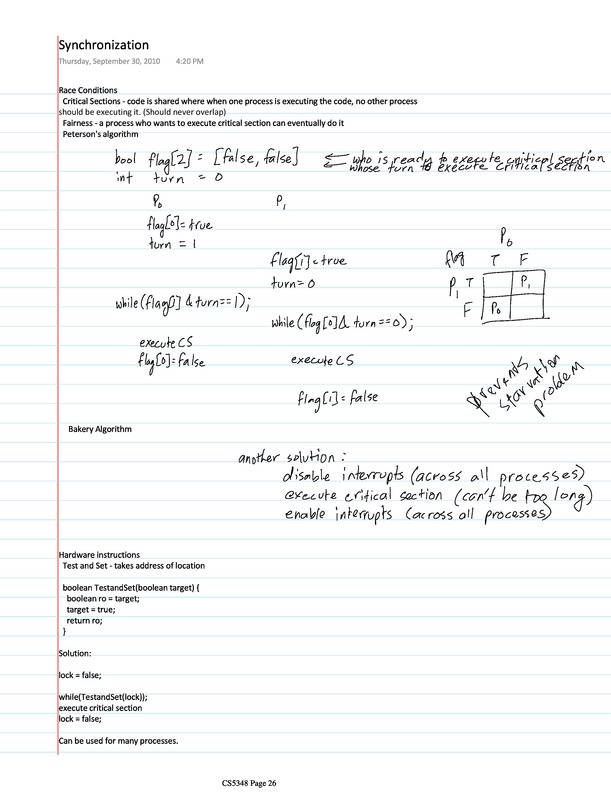 Synchronization
Thursday, September 30, 2010 4:20 PM
Race Conditions
Critical Sections - code is shared where when one process is executing the code, no other process
should be executing it. (Should never overlap)
Fairness - a process who wants to execute critical section can eventually do it
Peterson's algorithm
bool flag[2] = [false, false] ⇐ who is ready to execute critical section
int turn = 0 whose turn to execute critical section
P0 P1
flag[0]=true
turn = 1
flag[1]=true
turn=0
while(flag[1] & turn==1);
while(flag[0] & turn==0);
execute CS
flag[0]=false
execute CS
flag[1] = false
P0
flag T F
P1 T P1
F P0
prevents
starvation
problem
Bakery Algorithm
another solution:
disable interrupts (across all processes)
execute critical section (can't be too long)
enable interrupts (across all processes)
Hardware instructions
Test and Set - takes address of location
boolean TestandSet(boolean target) {
boolean ro = target;
target = true;
return ro;
}
Solution:
lock = false;
while(TestandSet(lock));
execute critical section
lock = false;
Can be used for many processes.
CS5348 Page 26